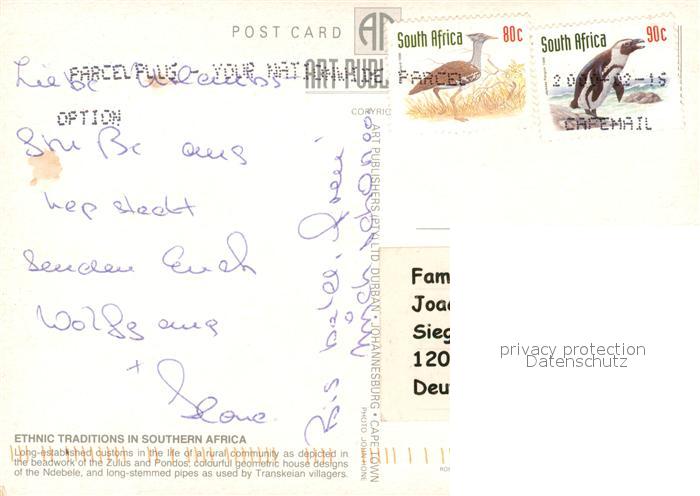 POST CARD
South Africa 80c
South Africa 90c
PARCELPLUS - YOUR NATIONWIDE PARCEL
OPTION
2000-02-16
CAPEMAIL
ART PUBL
COPYRIG
Liebe
Grüße aus
Kapstadt
senden Euch
Wolfgang
+
Bis bald,
ART PUBLISHERS (PTY) LTD DURBAN · JOHANNESBURG · CAPE TOWN
PHOTO JOHN HONE
Fam
Joac
Sieg
120
Deu
privacy protection
Datenschutz
ETHNIC TRADITIONS IN SOUTHERN AFRICA
Long-established customs in the life of a rural community as depicted in
the beadwork of the Zulus and Pondos, colourful geometric house designs
of the Ndebele, and long-stemmed pipes as used by Transkeian villagers.